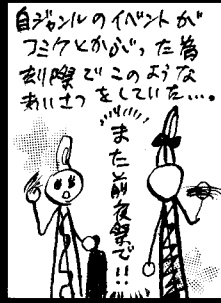 自ジャンルのイベントが
コミケとかぶった為
別際でこのような
あいさつをしていた…。
また前夜祭で!!